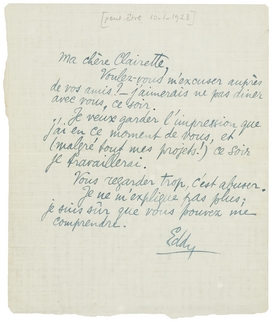 [peut-être 1928]
Ma chère Clairette,
Voulez-vous m'excuser auprès
de vos amis? – J'aimerais ne pas dîner
avec vous, ce soir.
Je veux garder l'impression que
j'ai en ce moment de vous, et
(malgré tout mes projets!) ce soir
je travaillerai.
Vous regarder trop, c'est abuser.
Je ne m'explique pas plus;
je suis sûr que vous pouvez me
comprendre.
Eddy